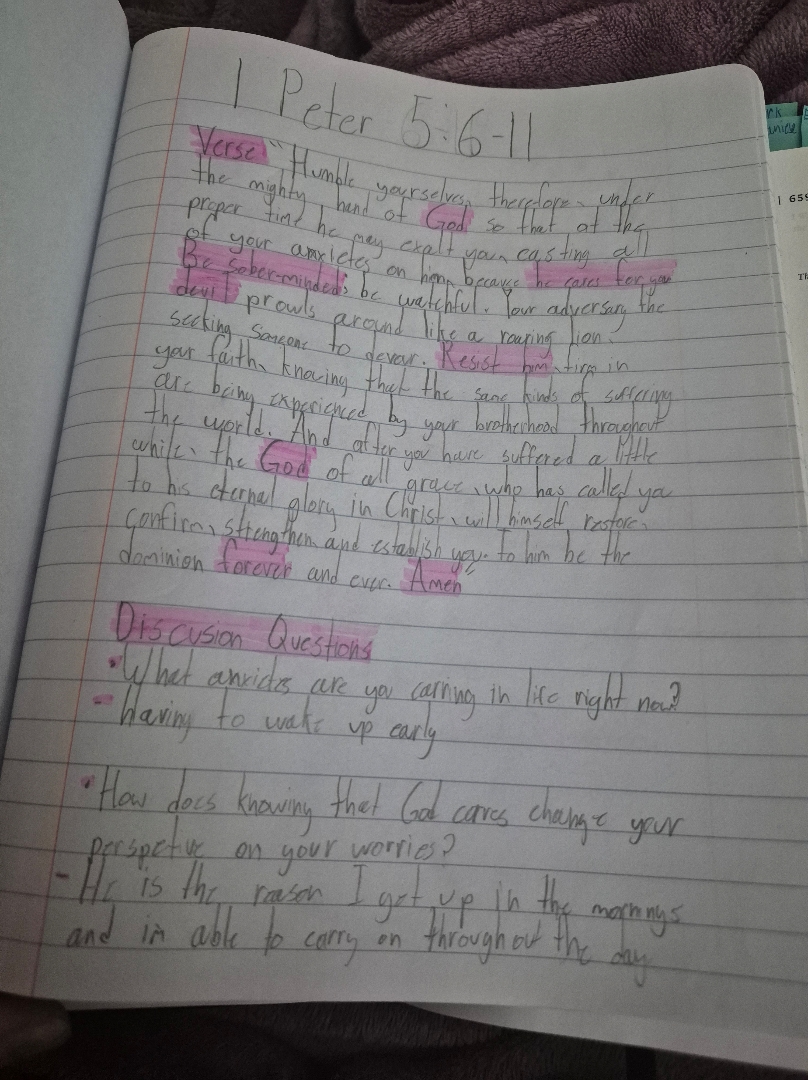 1 Peter 5:6-11
Verse "Humble yourselves, therefore, under
the mighty hand of God so that at the
proper time he may exalt you, casting all
of your anxieties on him, because he cares for you
Be sober-minded; be watchful. Your adversary the
devil prowls around like a roaring lion.
seeking someone to devour. Resist him, firm in
your faith, knowing that the same kinds of suffering
are being experienced by your brotherhood throughout
the world. And after you have suffered a little
while, the God of all grace, who has called you
to his eternal glory in Christ, will himself restore,
confirm, strengthen, and establish you. To him be the
dominion forever and ever. Amen"
Discusion Questions
• What anxieties are you carring in life right now?
- Having to wake up early
• How does knowing that God cares change your
perspetve on your worries?
- He is the reason I get up in the mornings
and im able to carry on throughout the day
659